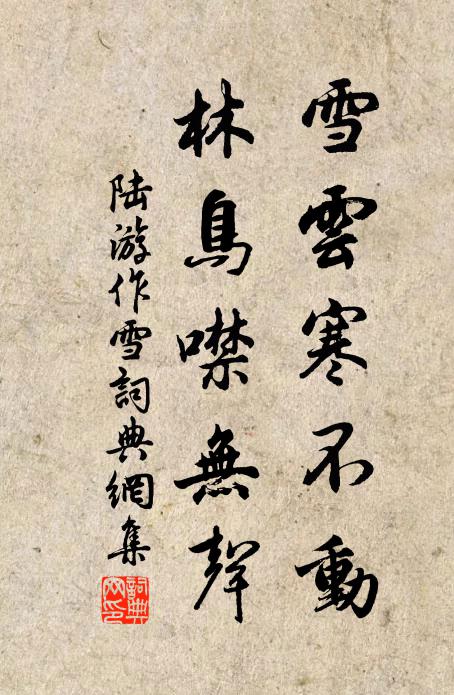 雪雲寒不動
林鳥噤無聲
陸游作雪詞典網集
詞典網印